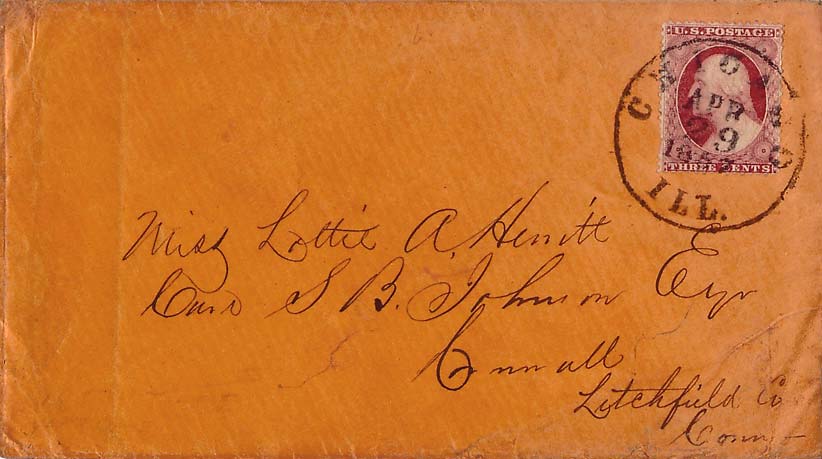 U.S. POSTAGE
THREE CENTS
CHICAGO
APR
29
ILL.
Miss Lottie A. Hewitt
Care S B. Johnson Esqr
Cornwall
Litchfield Co
Conn